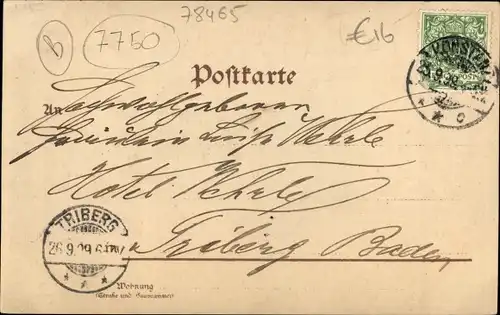 B
7750
78465
€16
Postkarte
KONSTANZ
An
Fräulein Luise Wehrle
Hotel Wehrle
Triberg Baden
TRIBERG
26.9.99.
Wohnung
(Straße und Hausnummer)